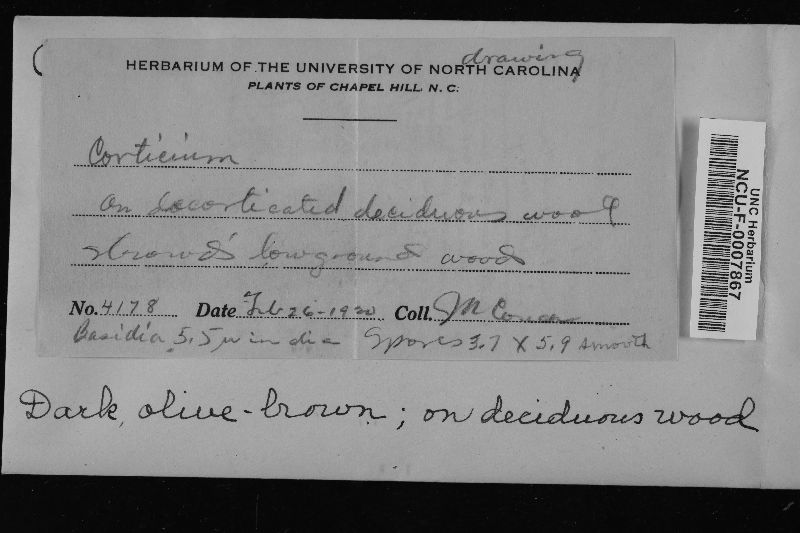 drawing
HERBARIUM OF THE UNIVERSITY OF NORTH CAROLINA
PLANTS OF CHAPEL HILL, N. C.
Corticium
On decorticated deciduous wood
Strowd's lowground woods
No. 4178 Date Feb 26-1920 Coll. J N Couch
Basidia 5.5 µ in dia Spores 3.7 X 5.9 smooth
Dark, olive-brown; on deciduous wood
UNC Herbarium
NCU-F-0007867